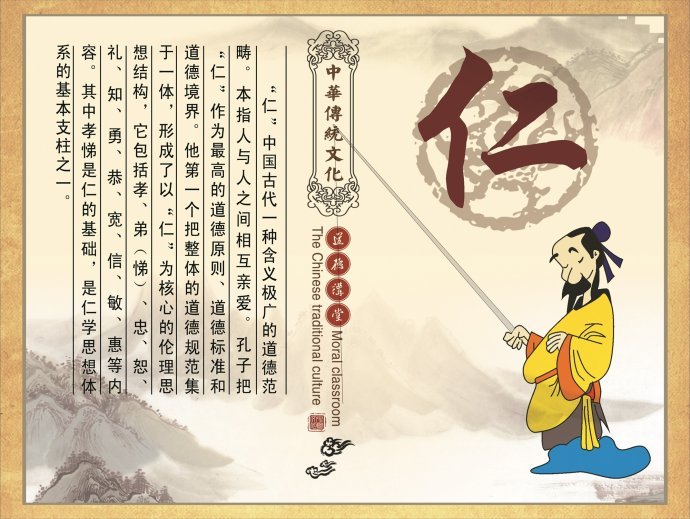 仁
中華傳統文化
道德講堂
Moral classroom
The Chinese traditional culture
“仁”中国古代一种含义极广的道德范
畴。本指人与人之间相互亲爱。孔子把
“仁”作为最高的道德原则、道德标准和
道德境界。他第一个把整体的道德规范集
于一体，形成了以“仁”为核心的伦理思
想结构，它包括孝、弟（悌）、忠、恕、
礼、知、勇、恭、宽、信、敏、惠等内
容。其中孝悌是仁的基础，是仁学思想体
系的基本支柱之一。